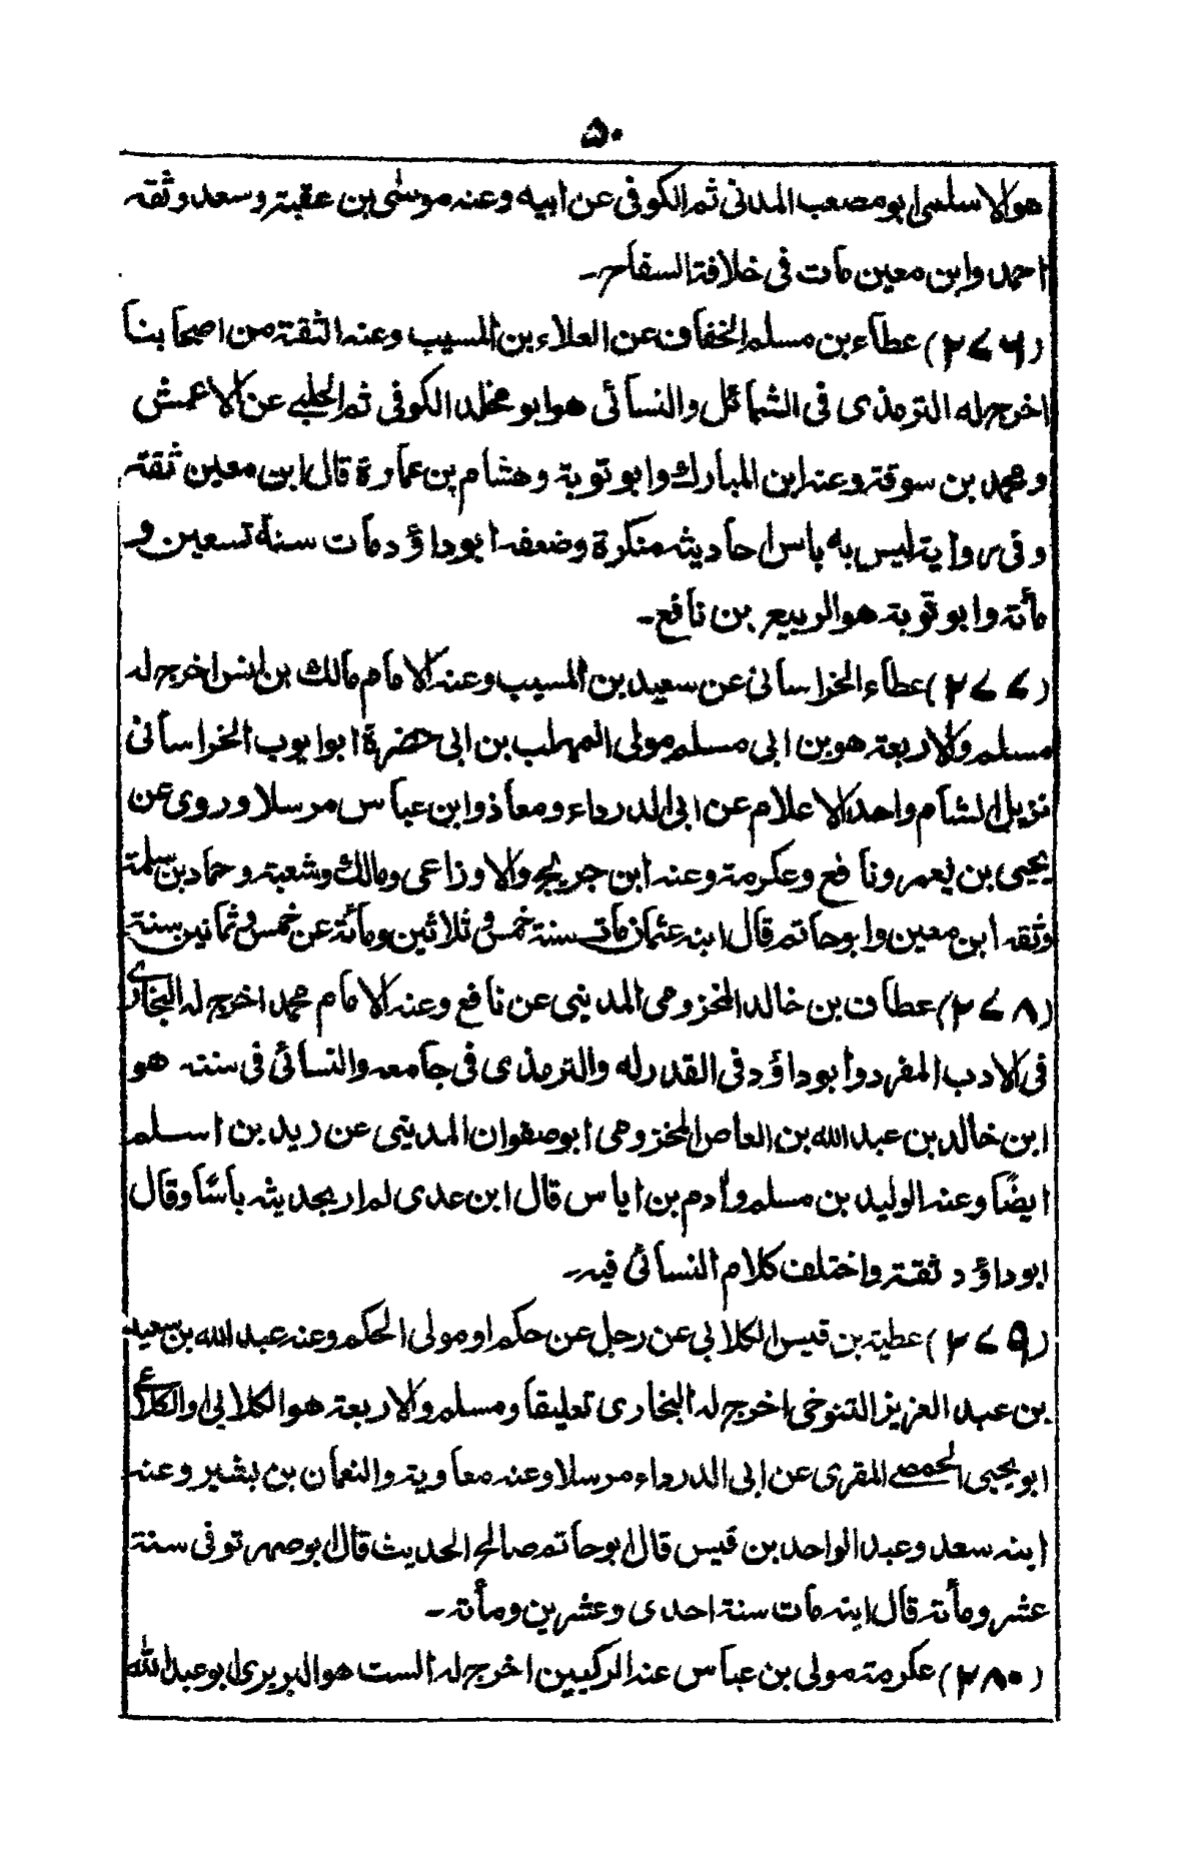 ۵۰
هو الاسلمی ابو مصعب المدنی ثم الکوفی عن ابیه وعنه موسٰی بن عقبة وسعد وثقه
احمد وابن معین مات فی خلافة السفاح۔
(۲۷۶) عطاء بن مسلم الخفاف عن العلاء بن المسیب وعنه الثقة من اصحابنا
اخرج له الترمذی فی الشمائل والنسائی هو ابو مخلد الکوفی ثم الحلبی عن الاعمش
ومحمد بن سوقة وعنه ابن المبارك وابو توبة وهشام بن عمارة قال ابن معین ثقة
وفی روایة لیس به باس احادیثه منکرة وضعفه ابو داؤد مات سنة تسعین و
مأئة وابو توبة هو الربیع بن نافع۔
(۲۷۷) عطاء الخراسانی عن سعید بن المسیب وعنه الامام مالك بن انس اخرج له
مسلم والاربعة هو بن ابی مسلم مولی المهلب بن ابی حضرة ابو ایوب الخراسانی
نزیل الشام واحد الاعلام عن ابی الدرداء ومعاذ وابن عباس مرسلا وروی عن
یحیی بن یعمر ونافع وعکرمة وعنه ابن جریج والاوزاعی ومالك وشعبة وحماد بن سلمة
وثقه ابن معین وابو حاتم قال ابنه عثمان مات سنة خمس و ثلاثین ومأئة عن خمس و ثمانین سنة
(۲۷۸) عطاف بن خالد المخزومی المدینی عن نافع وعنه الامام محمد اخرج له البخاری
فی الادب المفرد وابو داؤد فی القدر له والترمذی فی جامعه والنسائی فی سننه هو
ابن خالد بن عبد الله بن العاص المخزومی ابو صفوان المدینی عن زید بن اسلم
ایضًا وعنه الولید بن مسلم وأدم بن ایاس قال ابن عدی لم ار بحدیثه باسًا وقال
ابو داؤد ثقة واختلف کلام النسائی فیه۔
(۲۷۹) عطیة بن قیس الکلابی عن رجل عن حکم او مولی الحکم وعنه عبد الله بن سعید
بن عبد العزیز التنوخی اخرج له البخاری تعلیقاً ومسلم والاربعة هو الکلابی او الکلاعی
ابو یحیی الحمصی المقری عن ابی الدرداء مرسلا وعنه معاویة والنعمان بن بشیر وعنه
ابنه سعد وعبد الواحد بن قیس قال ابو حاتم صالح الحدیث قال ابو صهر توفی سنة
عشر ومأئة قال ابنه مات سنة احدی وعشرین ومأئة۔
(۲۸۰) عکرمة مولی بن عباس عنه الرکیبین اخرج له الست هو البربری ابو عبد الله